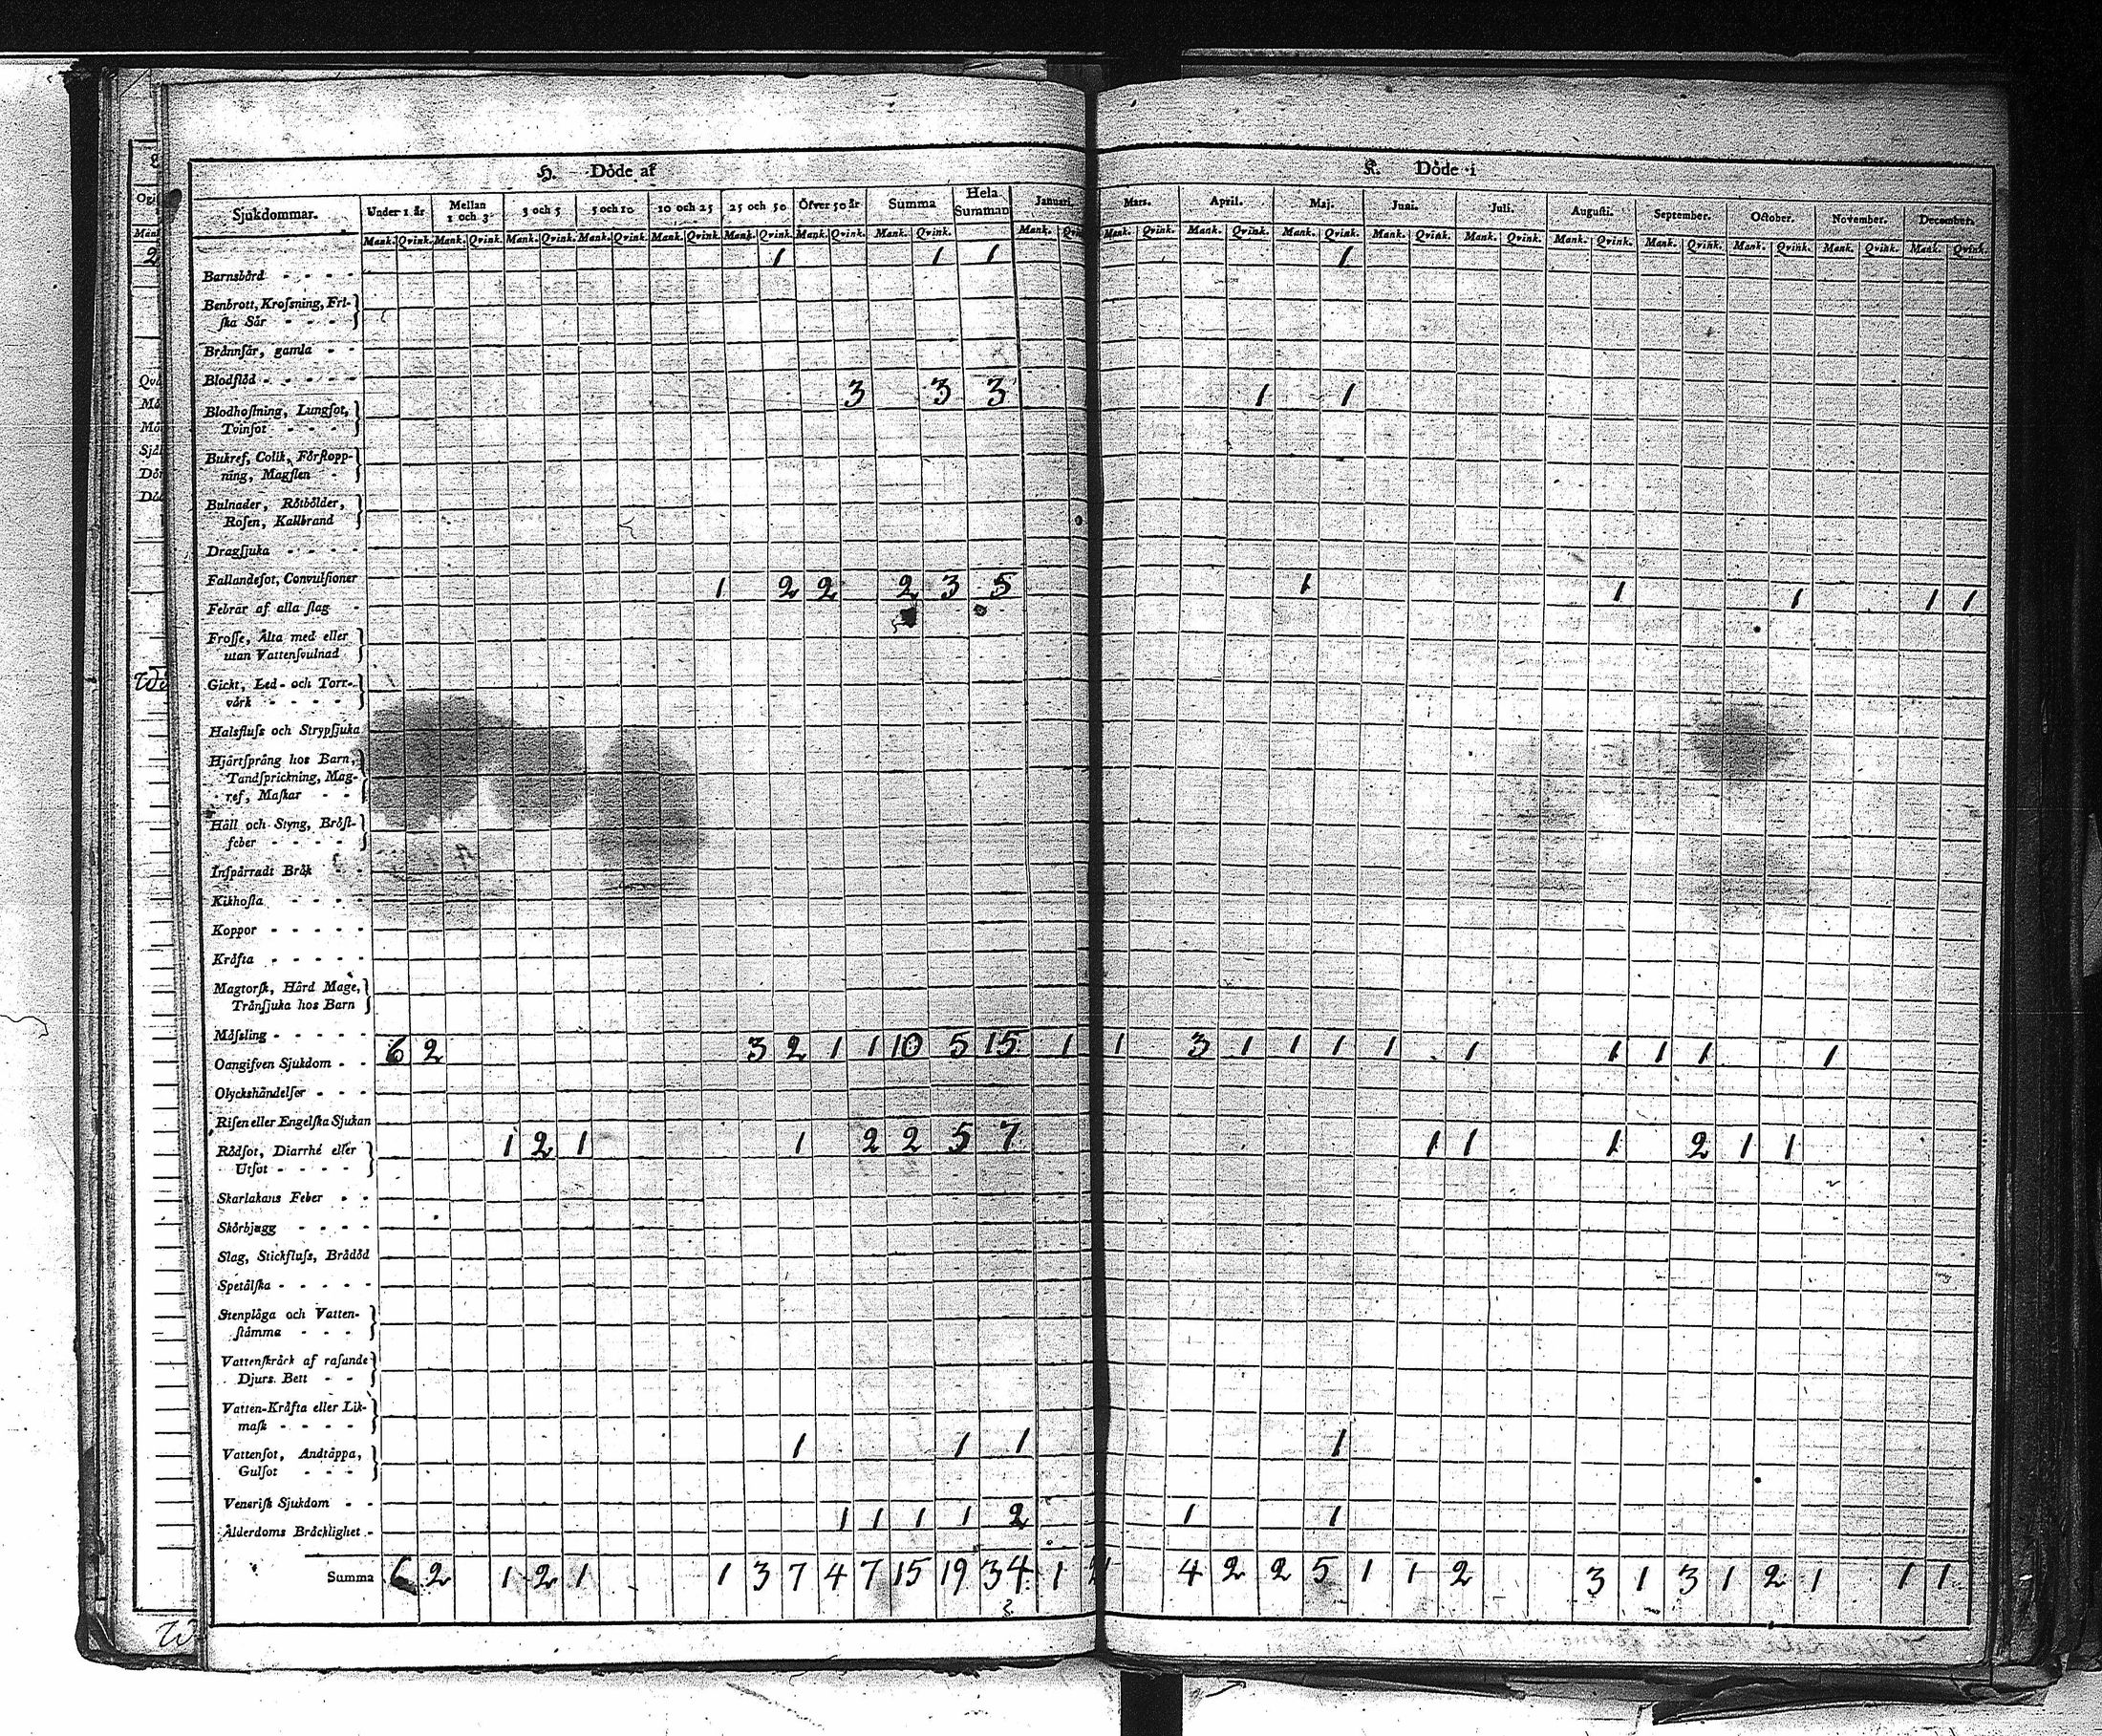 H. Döde af
K. Döde i
Sjukdommar.
Under 1 år
Mellan 1 och 3
3 och 5
5 och 10
10 och 25
25 och 50
Öfver 50 år
Summa
Hela Summan
Januari.
Mars.
April.
Maj.
Juni.
Juli.
Augusti.
September.
October.
November.
December.
Mank. Qvink. Mank. Qvink. Mank. Qvink. Mank. Qvink. Mank. Qvink. Mank. Qvink. Mank. Qvink. Mank. Qvink. Mank.
Mank. Qvink. Mank. Qvink. Mank. Qvink. Mank. Qvink. Mank. Qvink. Mank. Qvink. Mank. Qvink. Mank. Qvink. Mank. Qvink. Mank. Qvink.
Barnsbörd 1 1 1 1
Benbrott, Krosſning, Fri-
ſka Sår
Brännſår, gamla
Blodflöd
3 3 3 1 1
Blodhoſtning, Lungſot,
Tvinſot
Bukref, Colik, Förſtopp-
ning, Magſten
Bulnader, Rötbölder,
Roſen, Kallbrand
Dragſjuka
Fallandeſot, Convulſioner
1 2 2 2 3 5 1 1 1 1 1
Febrar af alla ſlag
Froſſe, Älta med eller
utan Vattenſvulnad
Gickt, Led- och Torr-
värk
Halsfluſs och Strypſjuka
Hjärtſprång hos Barn,
Tandſprickning, Mag-
ref, Maſkar
Håll och Styng, Bröſt-
feber
Inſpärradt Bråk
Kikhoſta
Koppor
Kräfta
Magtorſk, Hård Mage,
Tränſjuka hos Barn
Mäſsling
6 2 3 2 1 1 10 5 15 1 1 3 1 1 1 1 1 1 1 1 1
Oangifven Sjukdom
Olyckshändelſer
Riſen eller Engelſka Sjukan
1 2 1 1 2 2 5 7 1 1 1 2 1 1
Rödſot, Diarrhé eller
Utſot
Skarlakans Feber
Skörbjugg
Slag, Stickfluſs, Brådöd
Spetälſka
Stenplåga och Vatten-
ſtämma
Vattenſkräck af raſande
Djurs Bett
Vatten-Kräfta eller Lik-
maſk
1 1 1 1
Vattenſot, Andtäppa,
Gulſot
Veneriſk Sjukdom
1 1 1 1 2 1 1
Ålderdoms Bräcklighet
Summa 6 2 1 2 1 1 3 7 4 7 15 19 34 1 4 2 2 5 1 1 2 3 1 3 1 2 1 1 1